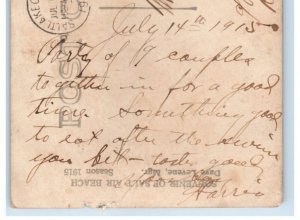 July 14th 1915
Party of 9 couples
together in for a good
time. Something good
to eat after the swim
you bet - good
Harris
SOUVENIR OF SALT AIR BEACH
Dave Levene, Mgr.
Season 1915
POST